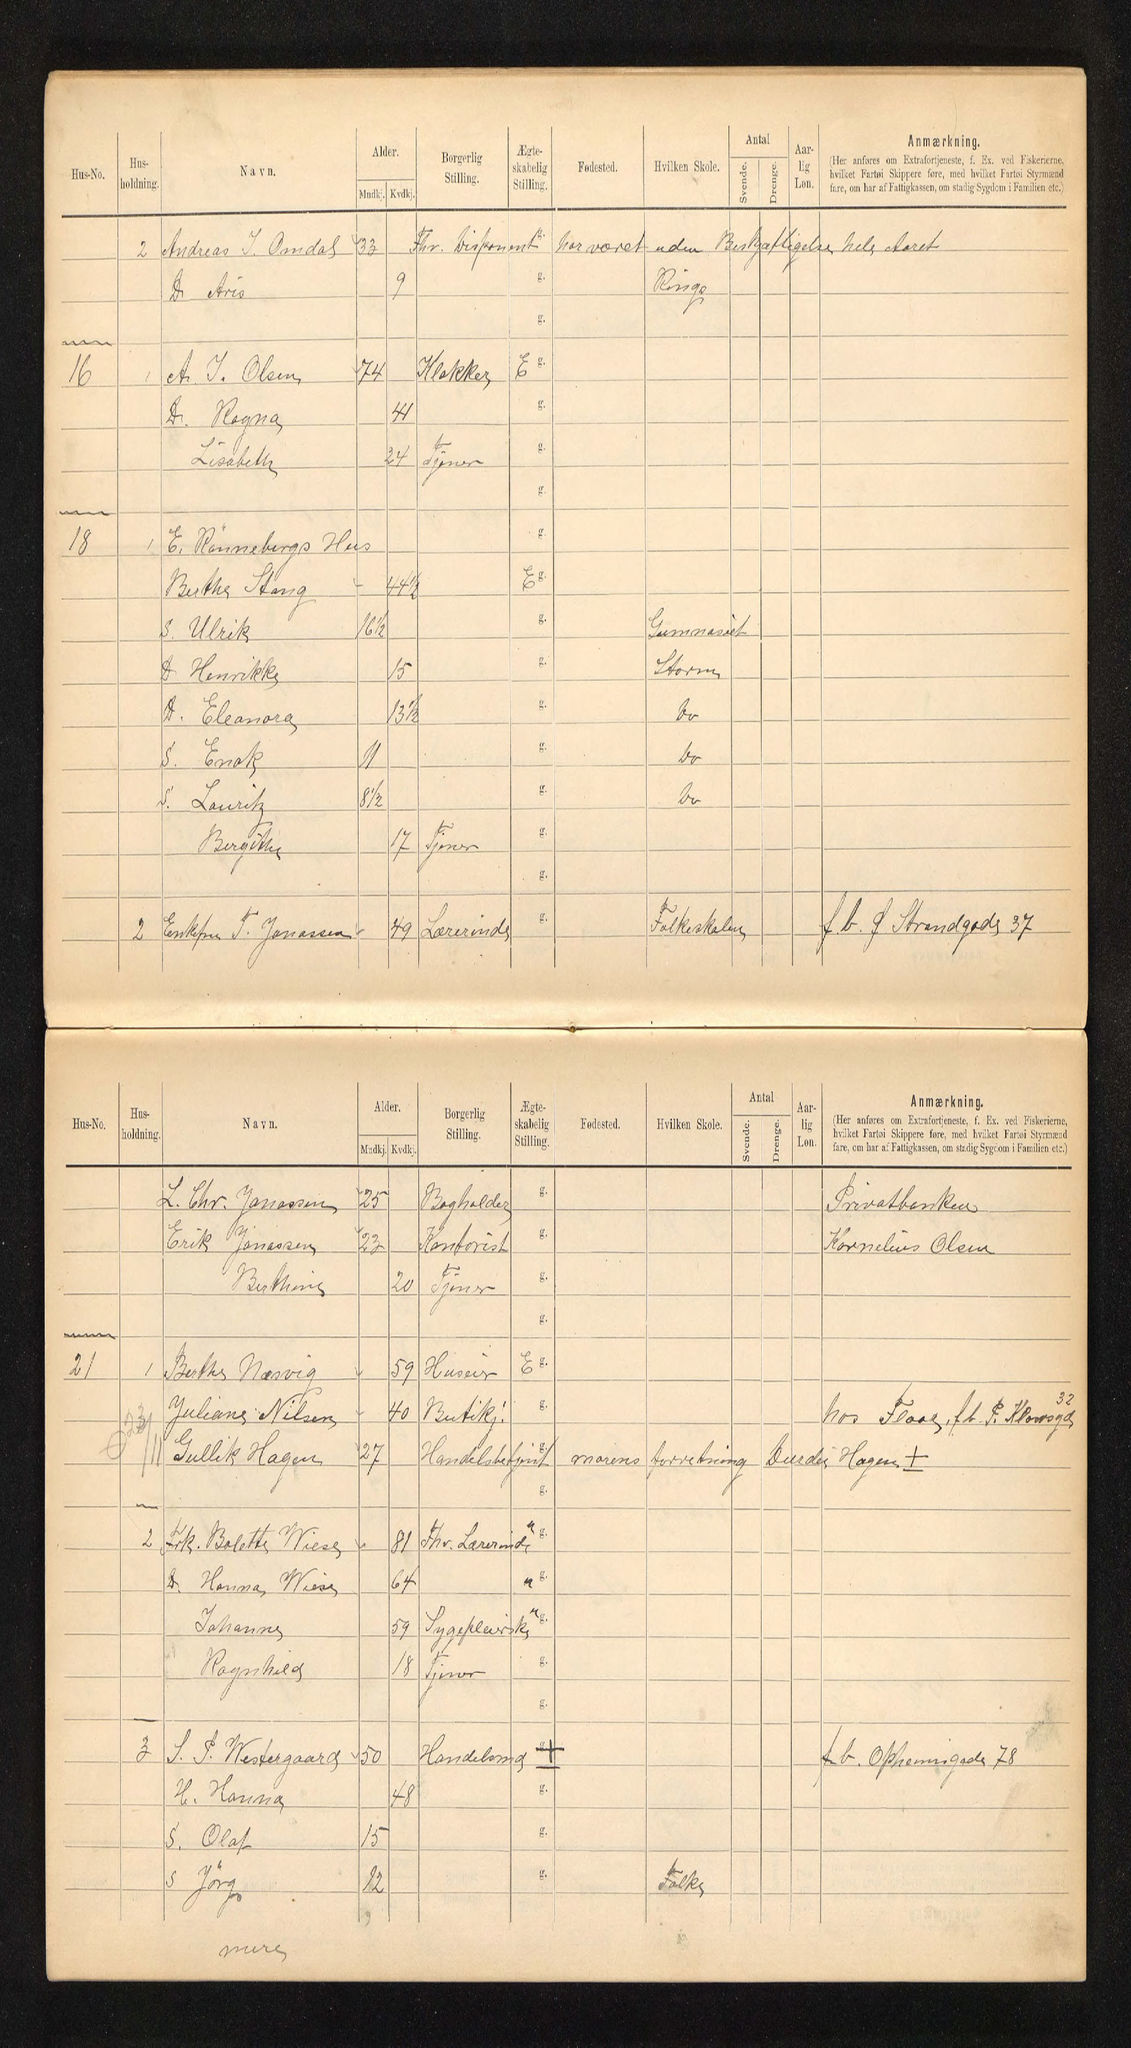 Hus-No. Hus-holdning. Navn. Alder. Mndkj. Kvdkj. Borgerlig Stilling. Ægte-skabelig Stilling. Fødested. Hvilken Skole. Antal Svende. Drenge. Aar-lig Løn. Anmærkning.
(Her anføres om Extrafortjeneste, f. Ex. ved Fiskerierne,
hvilket Fartøi Skippere føre, med hvilket Fartøi Styrmænd
fare, om har af Fattigkassen, om stadig Sygdom i Familien etc.)
2 Andreas J. Omdal 33 Fhv. Disponent g. har været uden Beskjæftigelse hele Aaret
D. Aris 9 g. Rings
g.
16 1 A. J. Olsen 74 Klokker E g.
D. Ragna 41 g.
Lisabeth 24 Tjener g.
g.
18 1 E. Rønnebergs Hus g.
Berthe Stang 44½ E g.
S. Ulrik 16½ g. Gymnasiet
D Henrikke 15 g. Storm
D. Eleanora 13½ g. Do
S. Enok 11 g. Do
S. Lauritz 8½ g. Do
Bergithe 17 Tjener g.
g.
2 Enkefru T. Jonassen 49 Lærerinde g. Folkeskolen f. b. Ø Strandgade 37
Hus-No. Hus-holdning. Navn. Alder. Mndkj. Kvdkj. Borgerlig Stilling. Ægte-skabelig Stilling. Fødested. Hvilken Skole. Antal Svende. Drenge. Aar-lig Løn. Anmærkning.
(Her anføres om Extrafortjeneste, f. Ex. ved Fiskerierne,
hvilket Fartøi Skippere føre, med hvilket Fartøi Styrmænd
fare, om har af Fattigkassen, om stadig Sygdom i Familien etc.)
L. Chr. Jonassen 25 Bogholder g. Privatbanken
Erik Jonassen 23 Kontorist g. Kornelius Olsen
Berthine 20 Tjener g.
g.
21 1 Berthe Næsvig 59 Huseier E g.
Juliane Nilsen 40 Butikj. g. hos Floor, f. b. P. Klowsgd 32
Gullik Hagen 27 Handelsbetjent g. morens forretning Durdei Hagen +
g.
2 Frk. Bolette Wiese 81 Fhv. Lærerinde u g.
D. Hanna Wiese 64 u g.
Johanne 59 Sygepleierske u g.
Ragnhild 18 Tjener g.
g.
3 S. P. Westergaard 50 Handelsmd + g. f. b. Opheimsgade 78
H. Hanna 48 g.
S. Olaf 15 g.
S Jörg 12 g. Folke
mere